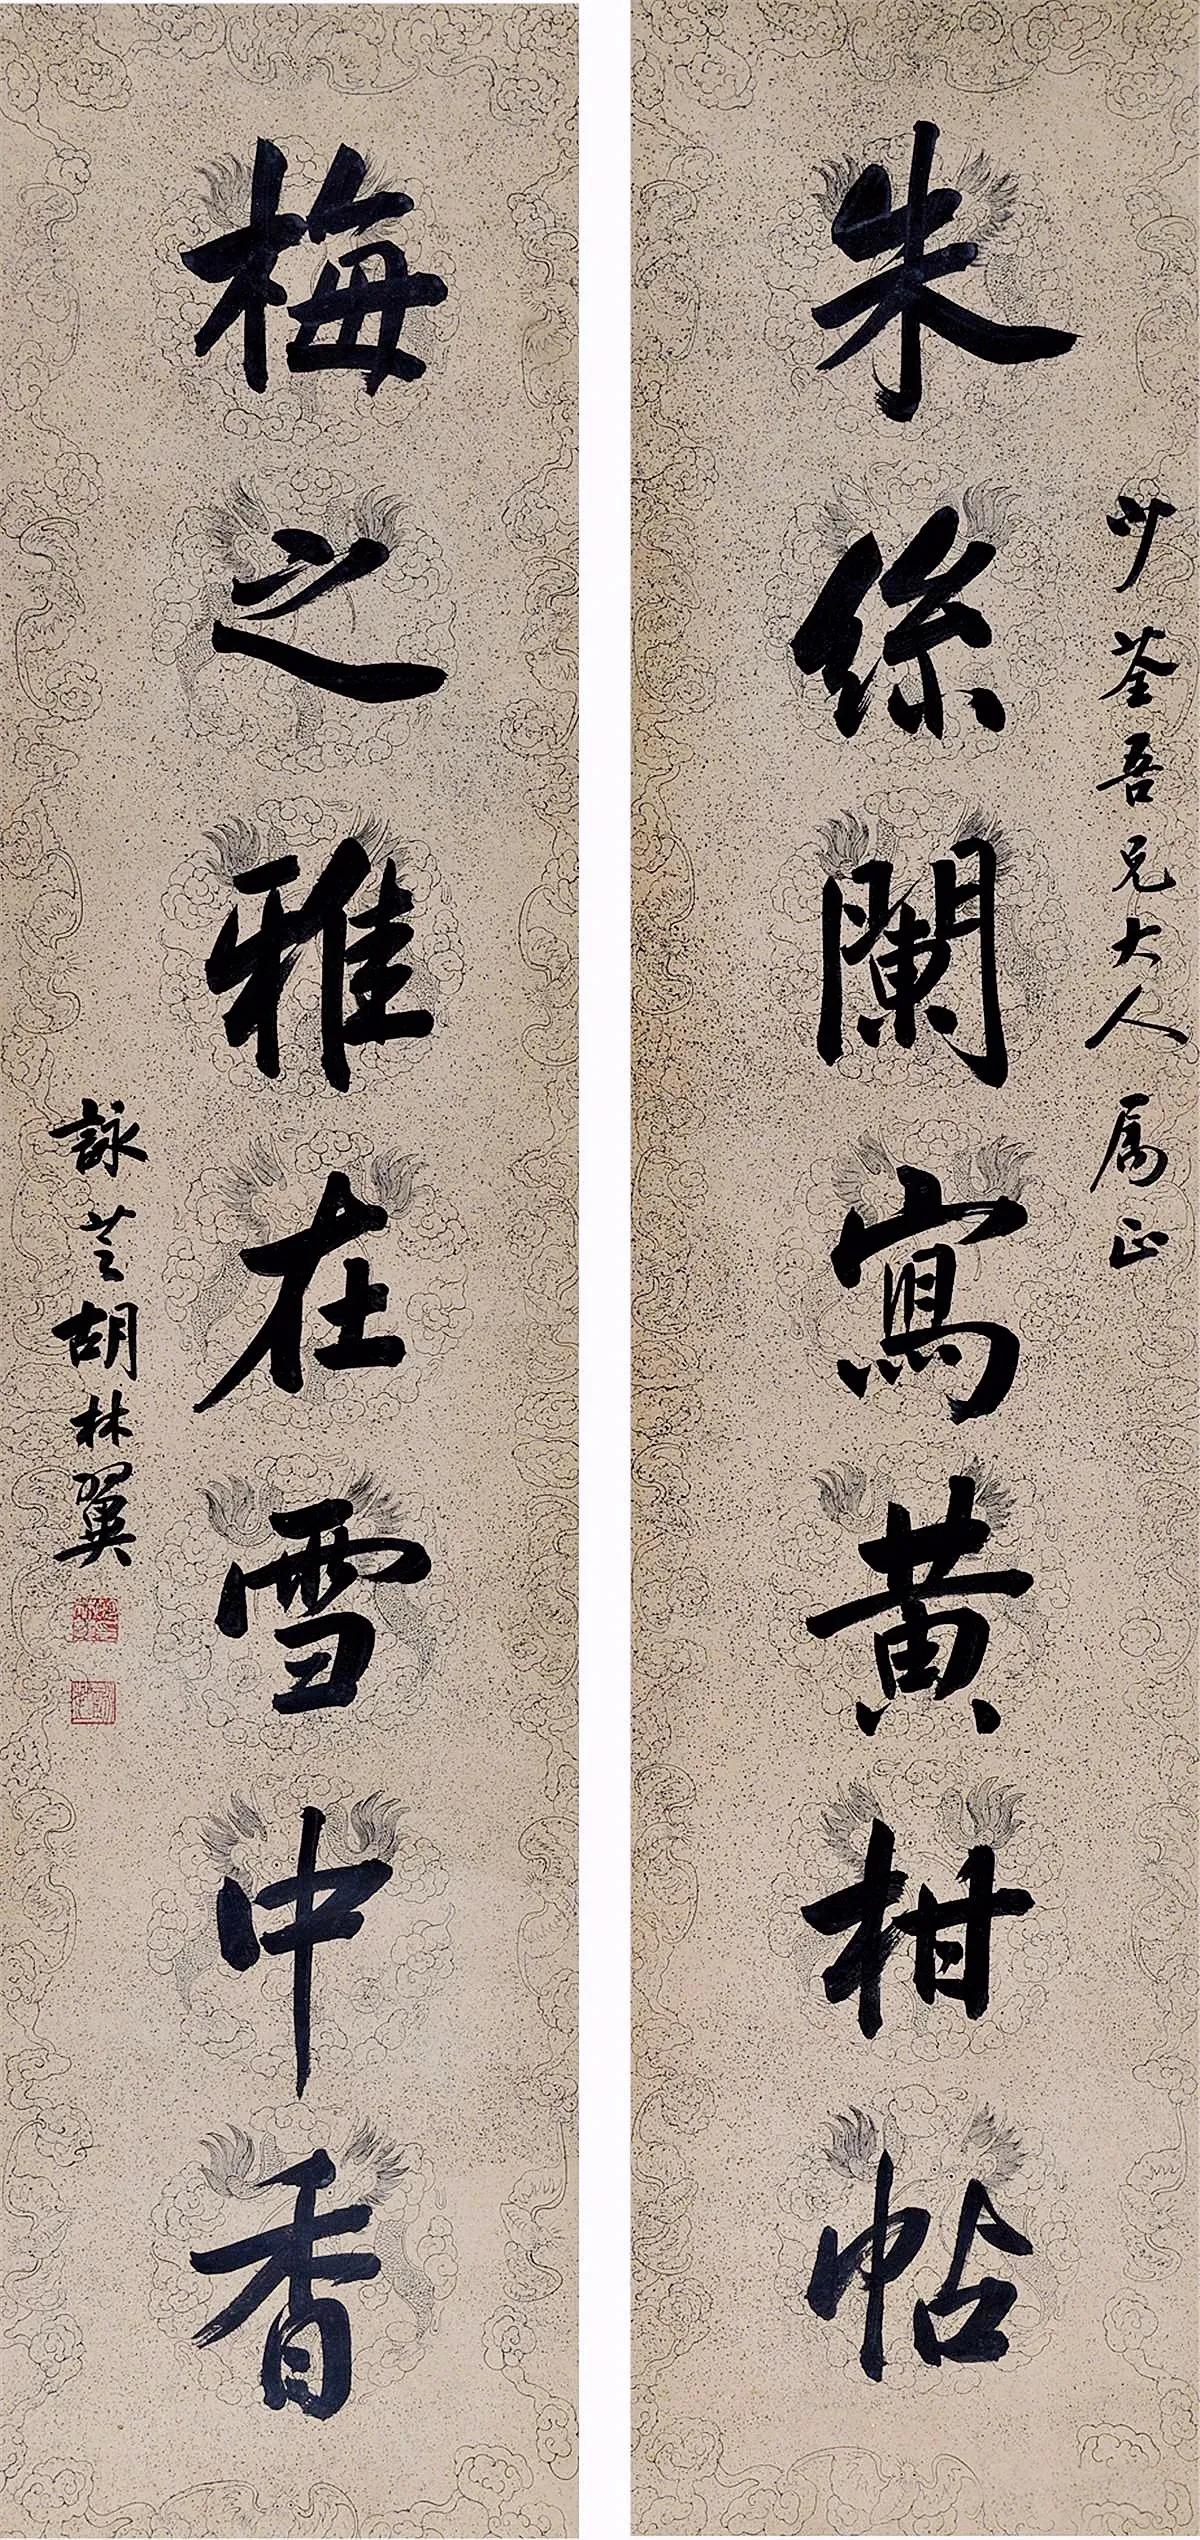 少荃吾兄大人属正
朱絲闌寫黄柑帖
梅之雅在雪中香
詠芝胡林翼